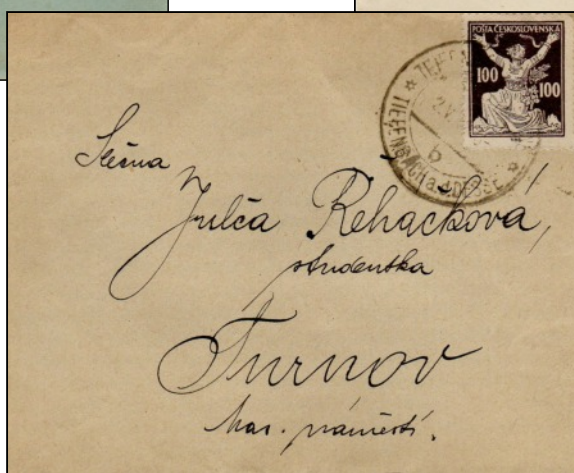 POŠTA ČESKOSLOVENSKÁ
100 100
TIEFENBACH a.d. DESSE
b
Slečna
Julča Řehačková,
studentka
Turnov
Mar. náměstí.